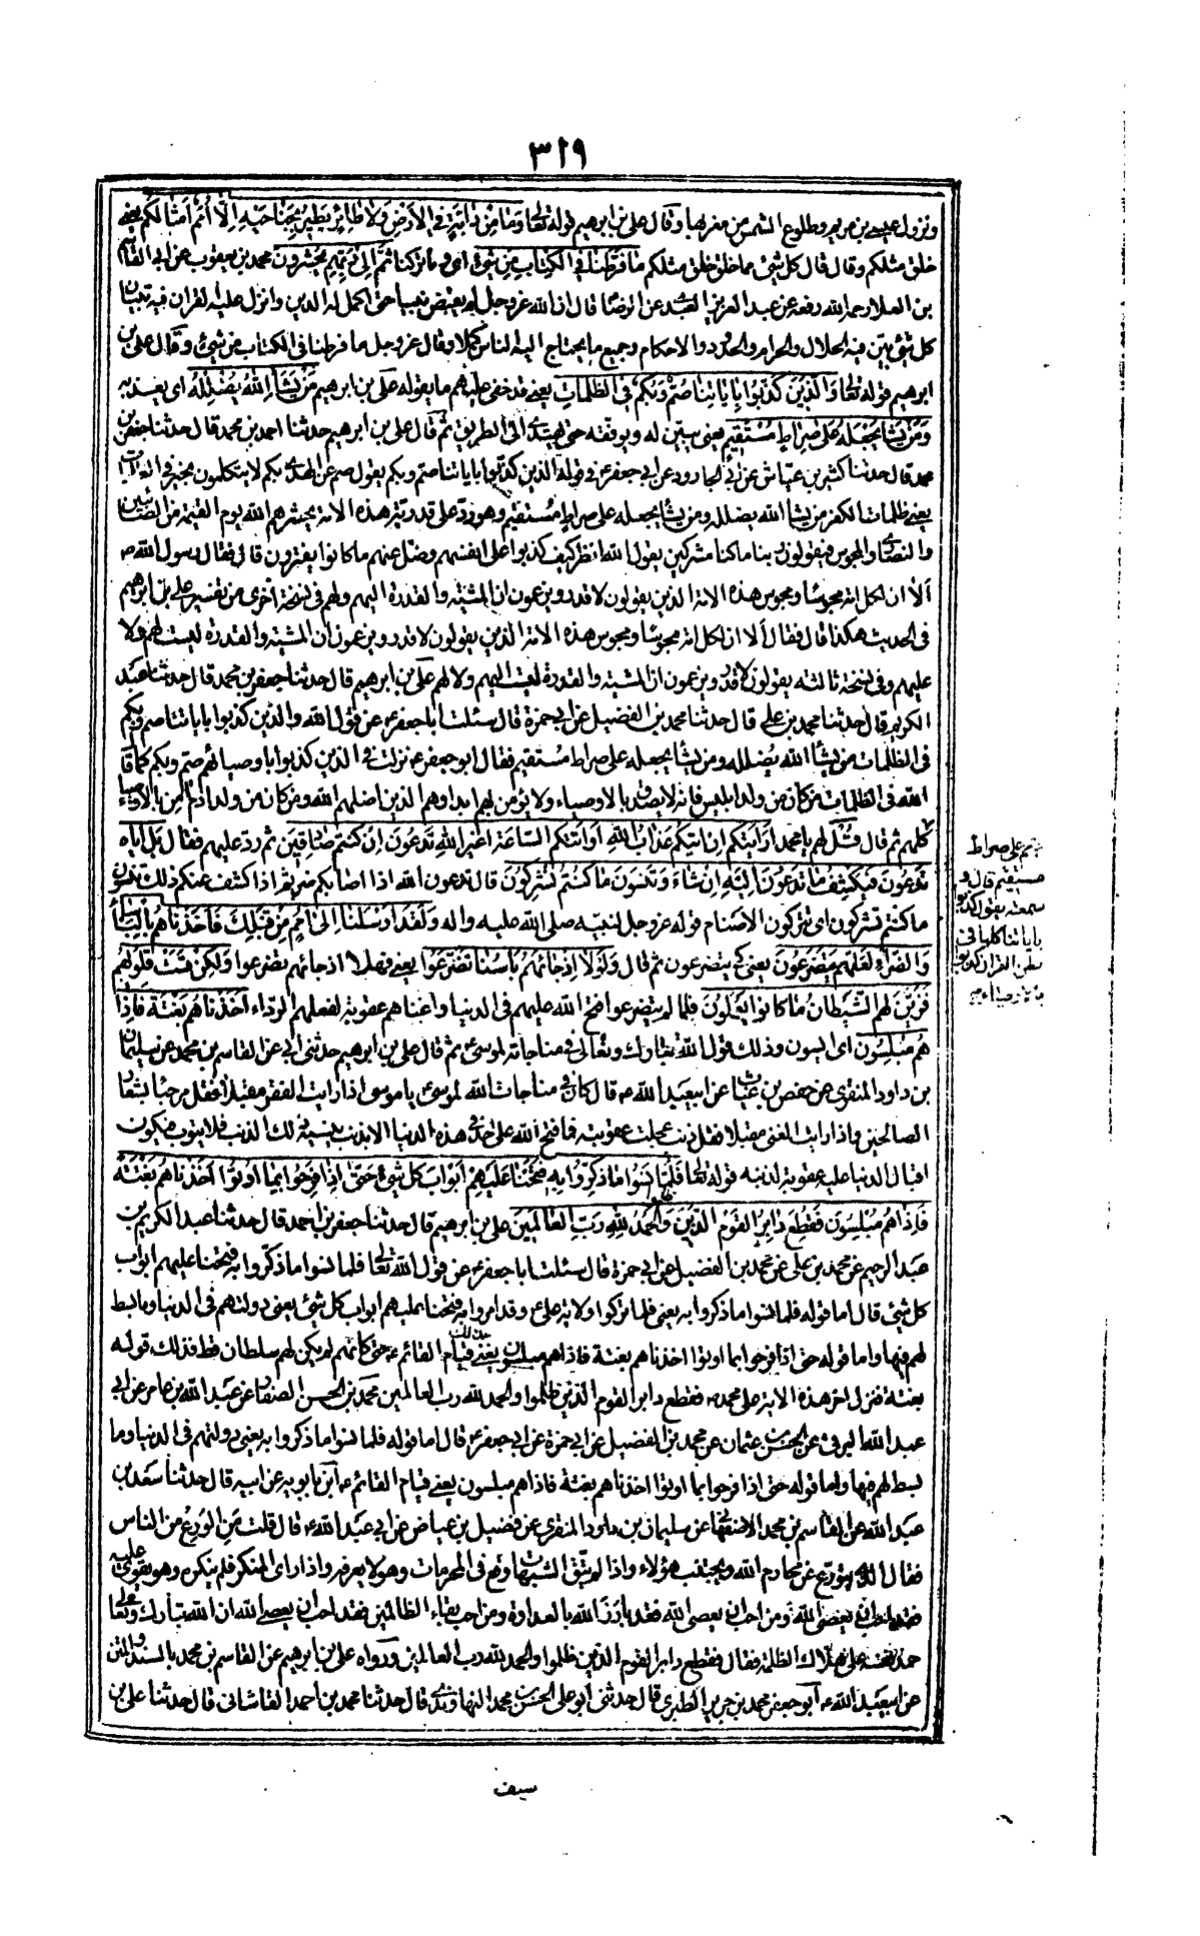 ٣١٩
ونزول عيسى بن مريم وطلوع الشمس من مغربها وقال علي بن ابرهيم قوله تعالى وَمَا مِنْ دَابَّةٍ فِي الأَرْضِ وَلا طَائِرٍ يَطِيرُ بِجَنَاحَيْهِ اِلاّ أُمَمٌ اَمْثَالُكُم يعني
خلق مثلكم وقال قال كل شئ مما خلق خلق مثلكم مَا فَرَّطْنَا فِي الكِتَابِ مِنْ شَئٍ اى ما تركنا ثُمَّ اِلىٰ رَبِّهِمْ يُحْشَرُونَ محمد بن يعقوب عن ابي القاسم
بن العلا رحمه الله رفعه عن عبد العزيز بن مسلم عن الرضا قال ان الله عز وجل لم يقبض نبيا حتى اكمل له الدين وانزل عليه القران فيه تبيان
كل شئ بيّن فيه الحلال والحرام والحدود والاحكام وجميع ما يحتاج اليه الناس كملا وقال عز وجل ما فرطنا في الكتاب من شئ وقال علي بن
ابرهيم قوله تعالى وَالَّذِينَ كَذَّبُوا بِاٰيَاتِنَا صُمٌّ وَبُكْمٌ فِي الظُّلُمَاتِ يعنى قد خفى عليهم ما يقوله علي بن ابرهيم مَنْ يَشَأِ اللهُ يُضْلِلْهُ اى يعذبه
وَمَنْ يَشَأْ يَجْعَلْهُ عَلىٰ صِرَاطٍ مُسْتَقِيمٍ يعنى يبيّن له ويوفقه حتى يهتدى الى الطريق ثم قال علي بن ابرهيم حدثنا احمد بن محمد قال حدثنا جعفر بن
محمد قال حدثنا كثير بن عيّاش عن ابى الجارود عن ابى جعفر ع فى قوله الذين كذبوا باياتنا صم وبكم يقول صم عن الهدى بكم لا يتكلمون بخير فى الظلمات
يعنى ظلمات الكفر من يشأ الله يضلله ومن يشأ يجعله على صراط مستقيم وهو رد على قدرية هذه الامة يحشرهم الله يوم القيمة من الصابئين
والنصارى والمجوس فيقولون ربنا ما كنا مشركين يقول الله انظر كيف كذبوا على انفسهم وضل عنهم ما كانوا يفترون قال فقال رسول الله ص
ألا ان لكل امة مجوسًا ومجوس هذه الامة الذين يقولون لا قدر ويزعمون ان المشية والقدرة اليهم ولهم فى نسخة اخرى من تفسير علي بن ابرهيم
فى الحديث هكذا قال فقال ألا ان لكل امة مجوسًا ومجوس هذه الامة الذين يقولون لا قدر ويزعمون ان المشية والقدرة ليست لهم ولا
عليهم وفى نسخة ثالثة يقولون لا قدر ويزعمون ان المشية والقدرة ليست اليهم ولا لهم علي بن ابرهيم قال حدثنا جعفر بن محمد قال حدثنا عبد
الكريم قال حدثنا محمد بن علي قال حدثنا محمد بن الفضيل عن ابى حمزة قال سئلت ابا جعفر ع عن قول الله والذين كذبوا باياتنا صم وبكم
فى الظلمات من يشأ الله يضلله ومن يشأ يجعله على صراط مستقيم فقال ابو جعفر ع نزلت فى الذين كذبوا باوصيائهم صم وبكم كما قال
الله فى الظلمات من كان من ولد ابليس فانه لا يصدق بالاوصياء ولا يؤمن بهم ابدا وهم الذين اضلهم الله ومن كان من ولد ادم امن بالاوصياء
كلهم ثم قال قُلْ لهم يا محمد اَرَاَيْتَكُمْ اِنْ اَتَيٰكُمْ عَذَابُ اللهِ اَوْ اَتَتْكُمُ السَّاعَةُ اَغَيْرَ اللهِ تَدْعُونَ اِنْ كُنْتُمْ صَادِقِينَ ثم رد عليهم فقال بَلْ اِيَّاهُ
تَدْعُونَ فَيَكْشِفُ مَا تَدْعُونَ اِلَيْهِ اِنْ شَاءَ وَتَنْسَوْنَ مَا تُشْرِكُونَ قال تدعون الله اذا اصابكم ضر ثم اذا كشف عنكم ذلك تنسون
ما كنتم تشركون اى تتركون الاصنام قوله عز وجل لنبيه صلى الله عليه واله وَلَقَدْ اَرْسَلْنَا اِلىٰ اُمَمٍ مِنْ قَبْلِكَ فَاَخَذْنَاهُمْ بِالبَأْسَاءِ
وَالضَّرَّاءِ لَعَلَّهُمْ يَتَضَرَّعُونَ يعنى كى يتضرعون ثم قال وَلَوْلا اِذْ جَائَهُمْ بَأْسُنَا تَضَرَّعُوا يعنى فهلا اذ جائهم يتضرعوا وَلٰكِنْ قَسَتْ قُلُوبُهُمْ
وَزَيَّنَ لَهُمُ الشَّيْطَانُ مَا كَانُوا يَعْمَلُونَ فلما لم يتضرعوا فتح الله عليهم فى الدنيا واغناهم عقوبة لفعلهم الردى اَخَذْنَاهُمْ بَغْتَةً فَاِذَا
هُمْ مُبْلِسُونَ اى ايسون وذلك قول الله تبارك وتعالى فى مناجاته لموسى ع ثم قال علي بن ابرهيم حدثنى ابى عن القاسم بن محمد عن سليمان
بن داود المنقرى عن حفص بن غياث عن ابيعبد الله ع قال كان فى مناجات الله لموسى ع يا موسى اذا رايت الفقر مقبلا فقل مرحبا بشعار
الصالحين واذا رايت الغنى مقبلا فقل ذنب عجلت عقوبته فما فتح الله على احد فى هذه الدنيا الا بذنب ينسيه ذلك الذنب فلا يتوب فيكون
اقبال الدنيا عليه عقوبة لذنبه قوله تعالى فَلَمَّا نَسُوا مَا ذُكِّرُوا بِهِ فَتَحْنَا عَلَيْهِمْ اَبْوَابَ كُلِّ شَئٍ حَتّىٰ اِذَا فَرِحُوا بِمَا اُوتُوا اَخَذْنَاهُمْ بَغْتَةً
فَاِذَا هُمْ مُبْلِسُونَ فَقُطِعَ دَابِرُ القَوْمِ الَّذِينَ ظلموا وَالحَمْدُ لِلهِ رَبِّ العَالَمِينَ علي بن ابرهيم قال حدثنا جعفر بن احمد قال حدثنا عبد الكريم بن
عبد الرحيم عن محمد بن على عن محمد بن الفضيل عن ابى حمزة قال سئلت ابا جعفر ع عن قول الله تعالى فلما نسوا ما ذكروا به فتحنا عليهم ابواب
كل شئ قال اما قوله فلما نسوا ما ذكروا به يعنى فلما تركوا ولاية على ع وقد امروا به فتحنا عليهم ابواب كل شئ يعنى دولتهم فى الدنيا وما بسط
لهم فيها واما قوله حتى اذا فرحوا بما اوتوا اخذناهم بغتة فاذا هم مبلسون يعنى بذلك قيام القائم ع حتى كانهم لم يكن لهم سلطان قط فذلك قوله
بغتة فنزل اخر هذه الاية على محمد ص فقطع دابر القوم الذين ظلموا والحمد لله رب العالمين محمد بن الحسن الصفار عن عبد الله بن عامر عن ابى
عبد الله البرقى عن الحسن بن عثمان عن محمد بن الفضيل عن ابى حمزة عن ابى جعفر ع قال اما قوله فلما نسوا ما ذكروا به يعنى دولتهم فى الدنيا وما
بسط لهم فيها واما قوله حتى اذا فرحوا بما اوتوا اخذناهم بغتة فاذا هم مبلسون يعنى قيام القائم ع ابن بابويه عن ابيه قال حدثنا سعد بن
عبد الله عن القاسم بن محمد الاصفهانى عن سليمان بن داود المنقرى عن فضيل بن عياض عن ابى عبد الله ع قال قلت مَنِ الورع من الناس
فقال الذى يتورّع عن محارم الله ويجتنب هؤلاء واذا لم يتق الشبهات وقع فى المحرمات وهو لا يعرفه واذا راى المنكر فلم ينكره وهو يقوى عليه
فقد احب ان يعصى الله ومن احب ان يعصى الله فقد بارز الله بالعداوة ومن احب بقاء الظالمين فقد احب ان يعصى الله ان الله تبارك وتعالى
حمد نفسه على هلاك الظلمة فقال فقطع دابر القوم الذين ظلموا والحمد لله رب العالمين ورواه علي بن ابرهيم عن القاسم بن محمد بالسند والمتن
عن ابيعبد الله ع ابو جعفر محمد بن جرير الطبرى قال حدثنى ابو على الحسن بن محمد النهاوندى قال حدثنا محمد بن احمد القاشانى قال حدثنا على بن
سيف
فهم على صراط
مستقيم قال و
سمعته يقول كذبوا
باياتنا كلها فى
بطن القران كذبوا
بالاوصياء